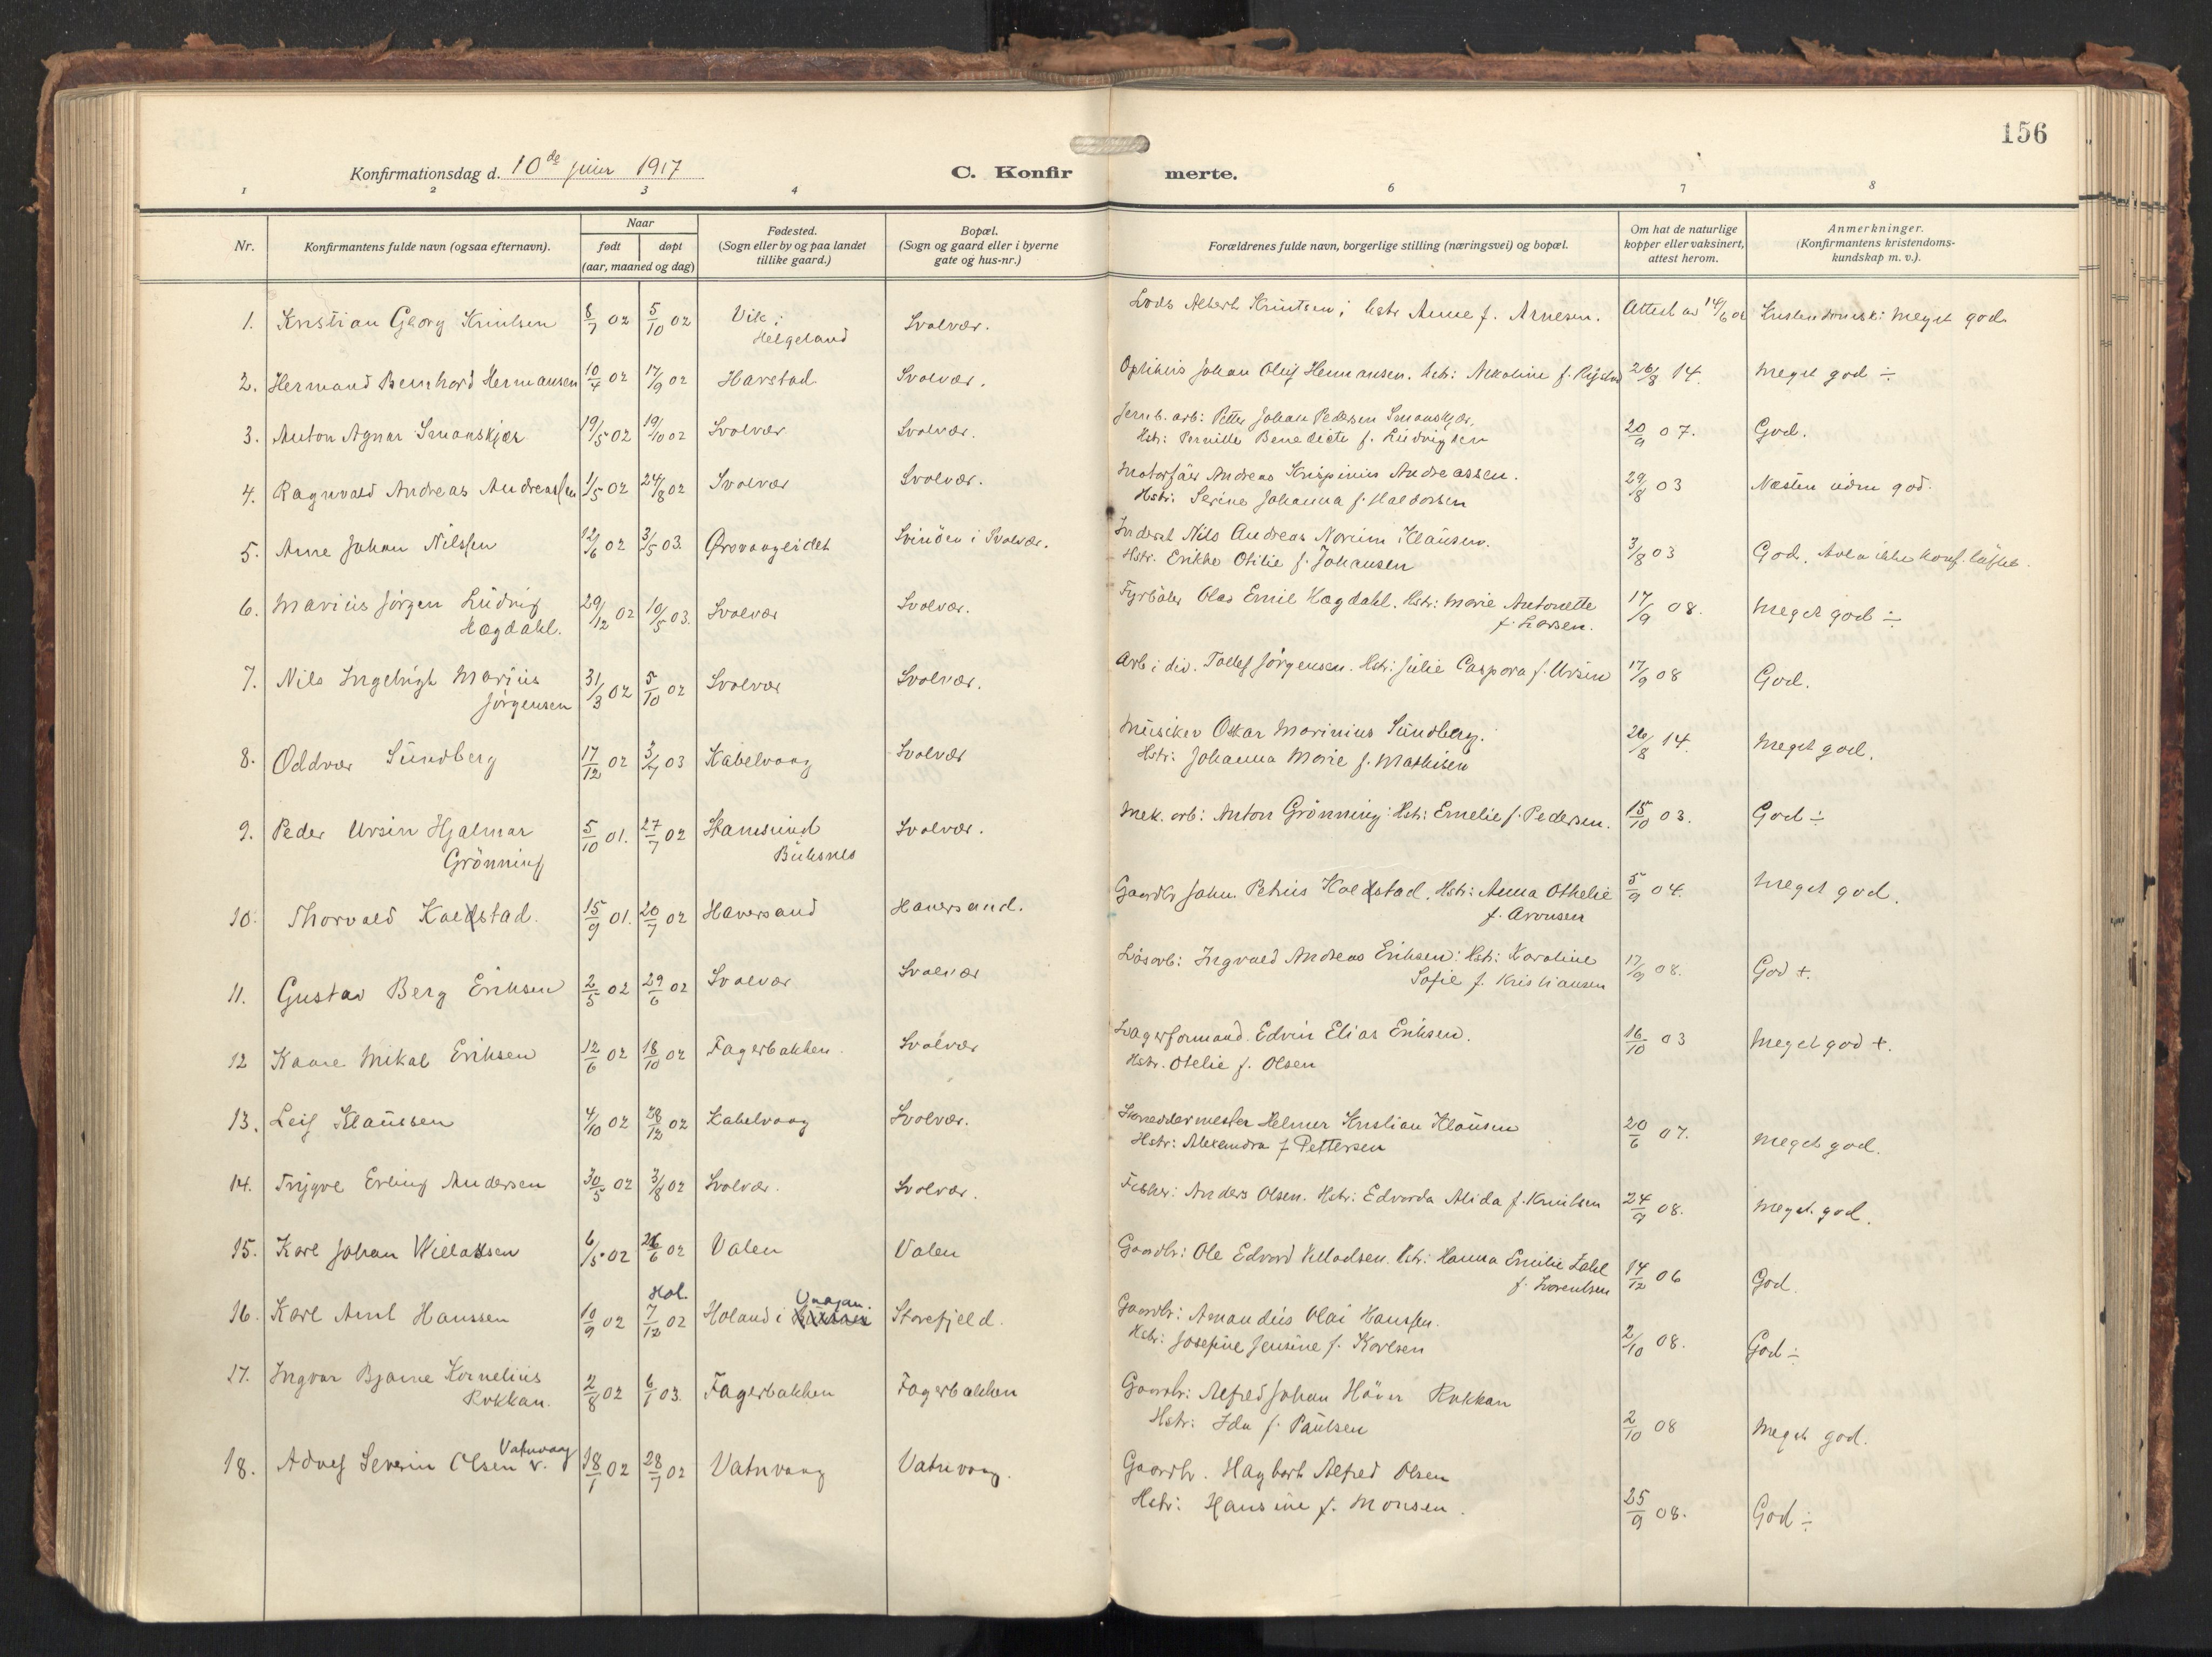 156
Konfirmationsdag d. 10de juni 1917
C. Konfirmerte.
1 2 3 4 6 7 8
Nr.
Konfirmantens fulde navn (ogsaa efternavn).
Naar
født døpt
(aar, maaned og dag)
Fødested.
(Sogn eller by og paa landet
tillike gaard.)
Bopæl.
(Sogn og gaard eller i byerne
gate og hus-nr.)
Forældrenes fulde navn, borgerlige stilling (næringsvei) og bopæl.
Om hat de naturlige
kopper eller vaksinert,
attest herom.
Anmerkninger.
(Konfirmantens kristendoms-
kundskap m. v.).
1. Kristian Georg Knutsen 8/7 02 5/10 02 Vik i Helgeland Svolvær. Lods Albert Knutsen; hstr Anne f. Arnesen. Attest av 14/6 02 Kristendomsk: Meget god.
2. Hermand Bernhard Hermansen 10/4 02 17/9 02 Harstad Svolvær. Johan Oluf Hermansen. hstr: Nikoline f. 26/8 14. Meget god ÷
3. Anton Agnar Smaaskjær 19/5 02 19/10 02 Svolvær Svolvær. Jernb. arb: Petter Johan Pedersen Smaaskjær.
Hstr: Pernille Benedicte f. Ludvigsen 20/9 07. God.
4. Ragnvald Andreas Andreassen 1/5 02 24/8 02 Svolvær Svolvær. Motorfør Andreas Krispinus Andreassen.
Hstr: Serine Johanna f. Haldorsen 29/8 03 Næsten udm god.
5. Arne Johan Nilssen 12/6 02 3/5 03. Ørsvaageidet Svinöen i Svolvær. Inderst Nils Andreas Norum Klausen.
Hstr. Erikke Otilie f. Johansen 3/8 03 God. Avla ikke konf. løftet.
6. Marius Jörgen Ludvig
Hægdahl. 29/12 02 10/5 03. Svolvær Svolvær. Fyrböter Olas Emil Hægdahl. Hstr: Marie Antonette
f. Larsen. 17/9 08. Meget god ÷
7. Nils Ingebrigt Marius
Jörgensen 31/3 02 5/10 02 Svolvær Svolvær. Arb i div. Tollef Jörgensen. Hstr: Julie Caspara f. Ursin 17/9 08 God.
8. Oddvar Sundberg 17/12 02 3/7 03 Kabelvaag Svolvær Musiker Oskar Marinius Sundberg.
Hstr: Johanna Marie f. Mathisen 26/8 14. Meget god.
9. Peder Ursin Hjalmar
Grönning 5/10 01. 27/7 02 Stamsund
Buksnes Svolvær. Mek. arb: Anton Grönning: Hstr: Emelie f. Pedersen. 15/10 03. God ÷
10. Thorvald Kalstad. 15/9 01. 20/7 02 Haversand Haversand. Gaardbr Johan Petrus Kalstad. Hstr: Anna Othelie
f. Aronsen 5/9 04. Meget god.
11. Gustav Berg Eriksen 2/5 02 29/6 02 Svolvær Svolvær Lösarb: Ingvald Andreas Eriksen: Hstr: Karoline
Sofie f. Kristiansen 17/9 08. God +.
12 Kaare Mikal Eriksen 12/6 02 18/10 02 Fagerbakken. Svolvær Lagerformand. Edvin Elias Eriksen.
Hstr. Otelie f. Olsen 16/10 03 Meget god +.
13. Leif Klaussen 4/10 02 28/12 02 Kabelvaag Svolvær. Skræddermester Helmer Kristian Klausen
Hstr: Alexandra f Pettersen 20/6 07. Meget god.
14. Trygve Erling Andersen 30/5 02 3/8 02 Svolvær. Svolvær. Fisker: Anders Olsen. Hstr: Edvarda Alida f. Knutsen 24/9 08. Meget god.
15. Karl Johan Willadsen 6/5 02 26/6 02 Valen Valen Gaardbr: Ole Edvard Willadsen. Hstr: Hanna Emilie Zahl
f. Lorentsen 14/12 06 God.
16. Karl Arnt Hanssen 10/9 02 Hol 7/12 02 Holand i Vaagan. Storefjeld. Gaardbr: Amandus Olai Hanssen.
Hstr: Josefine Jensine f. Karlsen 2/10 08. God ÷
17. Ingvar Bjarne Kornelius
Rokkan. 2/8 02 6/1 03. Fagerbakken Fagerbakken Gaardbr: Alfred Johan Rokkan
Hstr: Ida f. Paulsen 2/10 08 Meget god.
18. Adolf Severin Olsen Vatnvaag v. 18/1 02 28/7 02 Vatnvaag Vatnvaag. Gaardbr. Hagbart Alfred Olsen
Hstr: Hansine f. Monsen. 25/9 08. God ÷